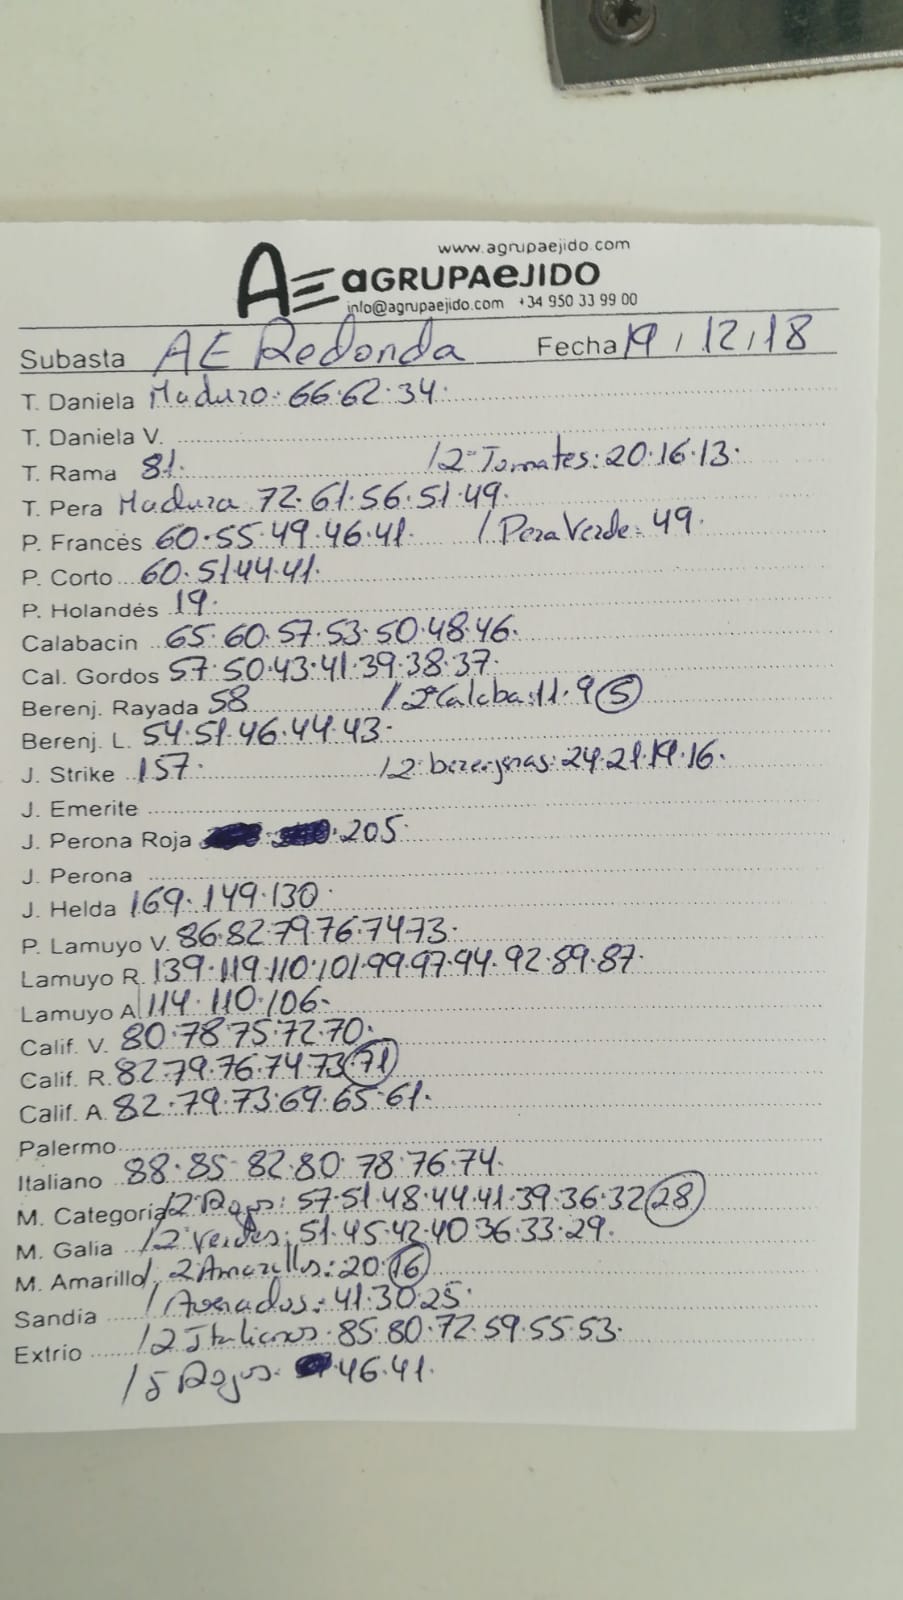 www.agrupaejido.com
AE aGRUPAeJIDO
info@agrupaejido.com +34 950 33 99 00
Subasta AE Redonda Fecha 19/12/18
T. Daniela Maduro. 66.62.34.
T. Daniela V.
T. Rama 81. /2ª Tomates: 20.16.13.
T. Pera Madura 72.61.56.51.49.
P. Francés 60.55.49.46.41. / Pera Verde: 49.
P. Corto 60.51.44.41.
P. Holandés 19.
Calabacin 65.60.57.53.50.48.46.
Cal. Gordos 57.50.43.41.39.38.37.
Berenj. Rayada 58 /2ª Calaba: 11.9 5
Berenj. L. 54.51.46.44.43.
J. Strike 157. /2: berenjenas: 24.21.19.16.
J. Emerite
J. Perona Roja 205.
J. Perona
J. Helda 169.149.130.
P. Lamuyo V. 86.82.79.76.74.73.
Lamuyo R. 139.119.110.101.99.97.94.92.89.87.
Lamuyo A 114.110.106.
Calif. V. 80.78.75.72.70.
Calif. R. 82.79.76.74.73.71
Calif. A. 82.79.73.69.65.61.
Palermo
Italiano 88.85.82.80.78.76.74.
M. Categoria /2 Rojos: 57.51.48.44.41.39.36.32 28
M. Galia /2 Verdes: 51.45.42.40.36.33.29.
M. Amarillo /2 Amarillos: 20.16
Sandia / Asurcados: 41.30.25.
Extrio /2 Italianos. 85.80.72.59.55.53.
/5 Rojos. 46.41.